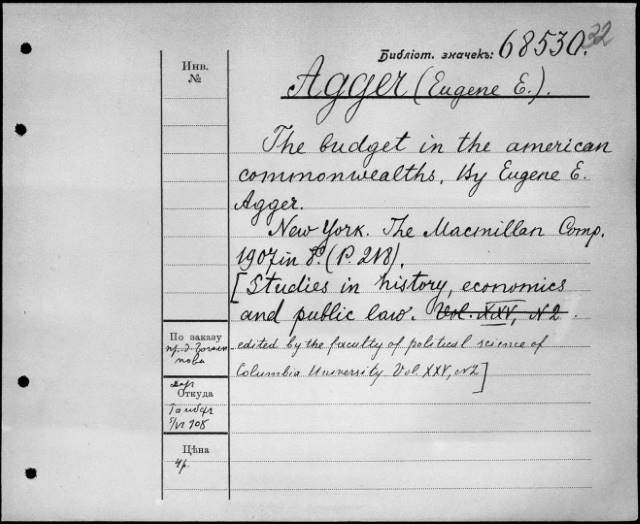 Библіот. значекъ: 68530. 32
Инв.
№
Agger (Eugene E.).
The budget in the american
commonwealths. By Eugene E.
Agger.
New York. The Macmillan Comp.
1907 in 8º. (P. 218).
[Studies in history, economics
and public law. Vol. XXV, N2
edited by the faculty of political science of
Columbia University Vol. XXV, N2]
По заказу
Откуда
5/VI 908
Цѣна
4р.